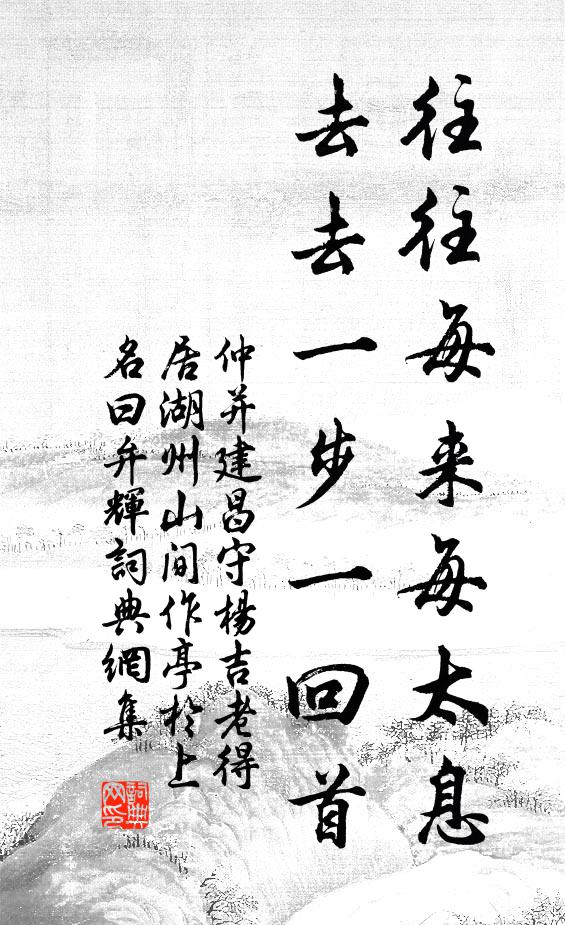 往往每来每太息
去去一步一回首
仲并建昌守楊吉老得
居湖州山间作亭於上
名曰弁輝詞典網集
詞典
网印